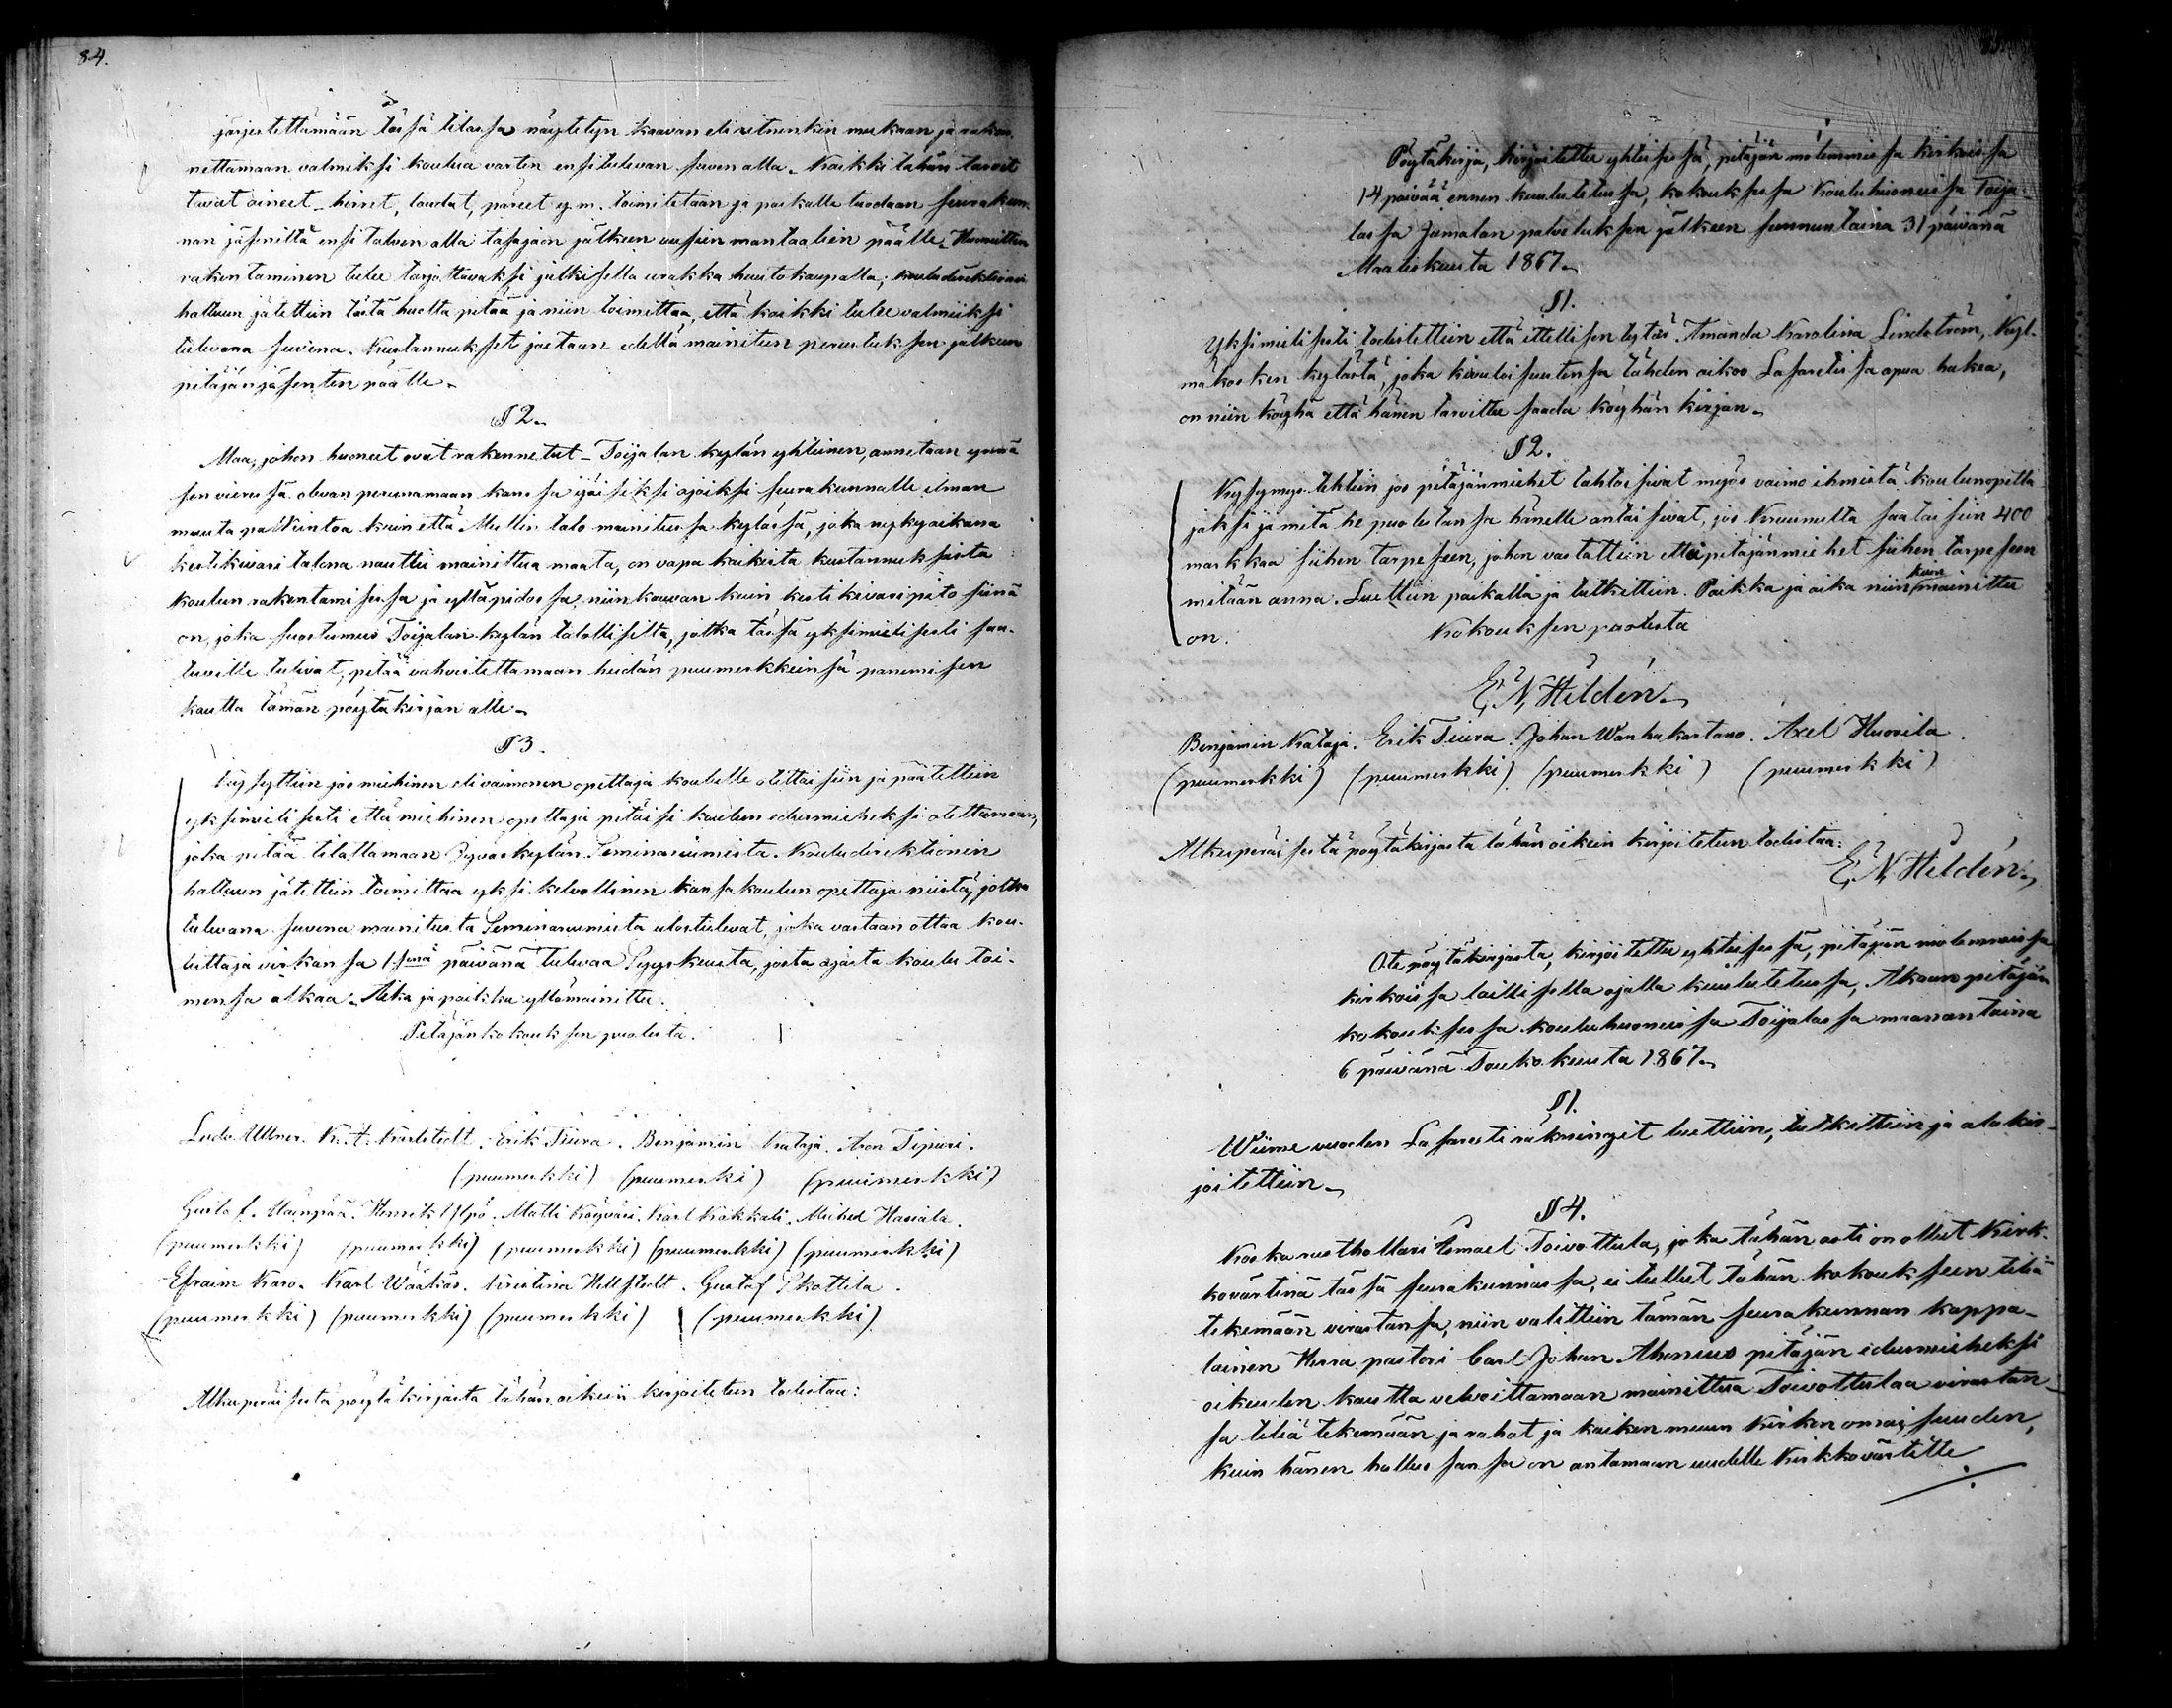 84.
järjestettämään tässä tilassa näytetyn kaavan eli ritninkin mukaan ja raken-
nettamaan valmiksi koulua varten ensitulevan suven alla. Kaikki tähän tarvit
tavat aineet - hirret, laudat, päreet y. m. toimitetaan ja paikalle tuodaan seurakun-
nan jäseniltä ensi talven alla tasajaon jälkeen uusien mantaalien päälle. Huonitten
rakentaminen tulee tarjottavaksi julkisella urakka huutokaupalla; kouludirektionin
haltuun jätettiin tästä huolta pitää ja niin toimittaa, että kaikki tulee valmiiksi
tulevana suvena. Kustannukset jaetaan edellä mainitun perustuksen jälkeen
pitäjänjäsenten päälle.
§ 2.
Maa, johon huoneet ovat rakennetut - Toijalan kylän yhteinen, annetaan ynnä
sen vieressä olevan perunamaan kanssa ijäiseksi ajaiksi seurakunnalle ilman
muuta palkintoa kuin että Mullin talo mainitussa kylässä, joka nykyaikana
kestikivari talona nauttii mainittua maata, on vapa kaikista kustannuksista
koulun rakentamisessa ja ylläpidossa, niinkauvan kuin kestikivaripito siinä
on, joka suostumus Toijalan kylän talollisilta, jotka tässä yksimielisesti saa-
tuville tulivat, pitää vahvistettamaan heidän puumerkkeinsä panemisen
kautta tämän pöytäkirjan alle.
§ 3.
Kysyttiin jos miehinen eli vaimonen opettaja koululle otettaisiin ja päätettiin
yksimielisesti että miehinen opettaja pitäisi koulun edusmieheksi otettamaan,
joka pitää tilattamaan Jyväskylän Seminariumista. Kouludirektionin
haltuun jätettiin toimittaa yksi kelvollinen kansakoulun opettaja niistä, jotka
tulevana suvena mainitusta Seminariumista ulostulevat, joka vastaan ottaa kou-
luttaja virkansa 1:senä päivänä tulevaa Syyskuuta, josta ajasta koulu toi-
mensa alkaa. Aika ja paikka yllämainittu.
Pitäjänkokouksen puolesta.
Ludv. Ullner. K. A. Karlstedt. Erik Tiura. Benjamin Kataja. Aron Tipuri.
(puumerkki) (puumerki) (puumerkki)
Gustaf. Maenpää. Henrik Ilpo. Matti Köyväri. Karl Kokkali. Michel Hauiala.
(puumerkki) (puumerkki) (puumerkki) (puumerkki) (puumerkki)
Efraim Karo. Karl Wääkäs. Kristina Hellstedt. Gustaf Skottila.
(puumerkki) (puumerkki) (puumerkki) (puumerkki)
Alkuperäisestä pöytäkirjasta tähän oikein kirjoitetun todistaa:
Pöytäkirja, kirjoitettu yhteisessä, pitäjän molemmissa kirkoissa
14 päivää ennen kuulutetussa, kokouksessa Kouluhuoneissa Toija-
lassa Jumalan palveluksen jälkeen sunnuntaina 31 päivänä
Maaliskuuta 1867.
§ 1.
Yksimielisesti todistettiin että ittellisen tytär Amanda Karolina Lindström, Kyl-
mäkosken kylästä, joka kivuloisuutensa tähden aikoo Lasaretissa apua hakea,
on niin köyhä että hänen tarvittee saada köyhän kirjan.
§ 2.
Kysymys tehtiin jos pitäjänmiehet tahtoisivat myös vaimo ihmistä koulunopetta
jaksi ja mitä he puolestansa hänelle antaisivat, jos Kruunulta saataisiin 400
markkaa siihen tarpeseen, johon vastattiin ettei pitäjänmiehet siihen tarpeseen
mitään anna. Luettiin paikalla ja tutkittiin. Paikka ja aika niin kuin mainittu
on. Kokouksen puolesta
E, N, Hildén.
Benjamin Kataja. Erik Tiura. Johan Wanhakartano. Axel Huovila.
(puumerkki) (puumerkki) (puumerkki) (puumerkki)
Alkuperäisestä pöytäkirjasta tähän oikein kirjoitetun todistaa:
E, N, Hildén.
Ote pöytäkirjasta, kirjoitettu yhteisessä, pitäjän molemmissa
kirkoissa laillisella ajalla kuulutetussa, Akaan pitäjän
kokouksessa kouluhuoneissa Toijalassa maanantaina
6 päivänä Toukokuuta 1867.
§ 1.
Wiime vuoden Lasaretiräkningit luettiin, tutkittiin ja alakir-
joitettiin.
§ 4.
Koska rusthollari Ismael Toivottula, joka tähän asti on ollut Kirk-
kovärtinä tässä seurakunnassa, ei tullut tähän kokoukseen tiliä
tekemään virastansa, niin valittiin tämän seurakunnan kappa-
lainen Herra pastori Carl Johan Ahonius pitäjän edusmieheksi
oikeuden kautta velvoittamaan mainittua Toivottulaa virastan-
sa tiliä tekemään ja rahat ja kaiken muun kirkon omaisuuden,
kuin hänen hallussansa on antamaan uudelle Kirkkovärtille.